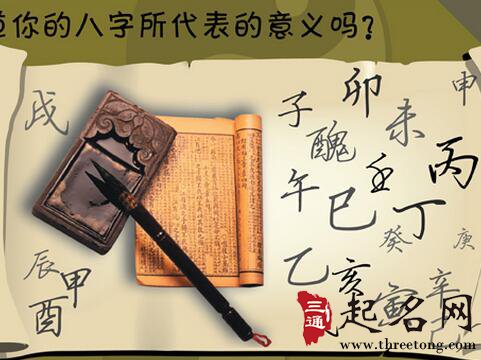 道你的八字所代表的意义吗?
戌
子
卯
未
申
醜
午
壬
丙
巳
丁
乙
癸
庚
辰
甲
酉
亥
寅
辛
三通
起名网
www.threetong.com